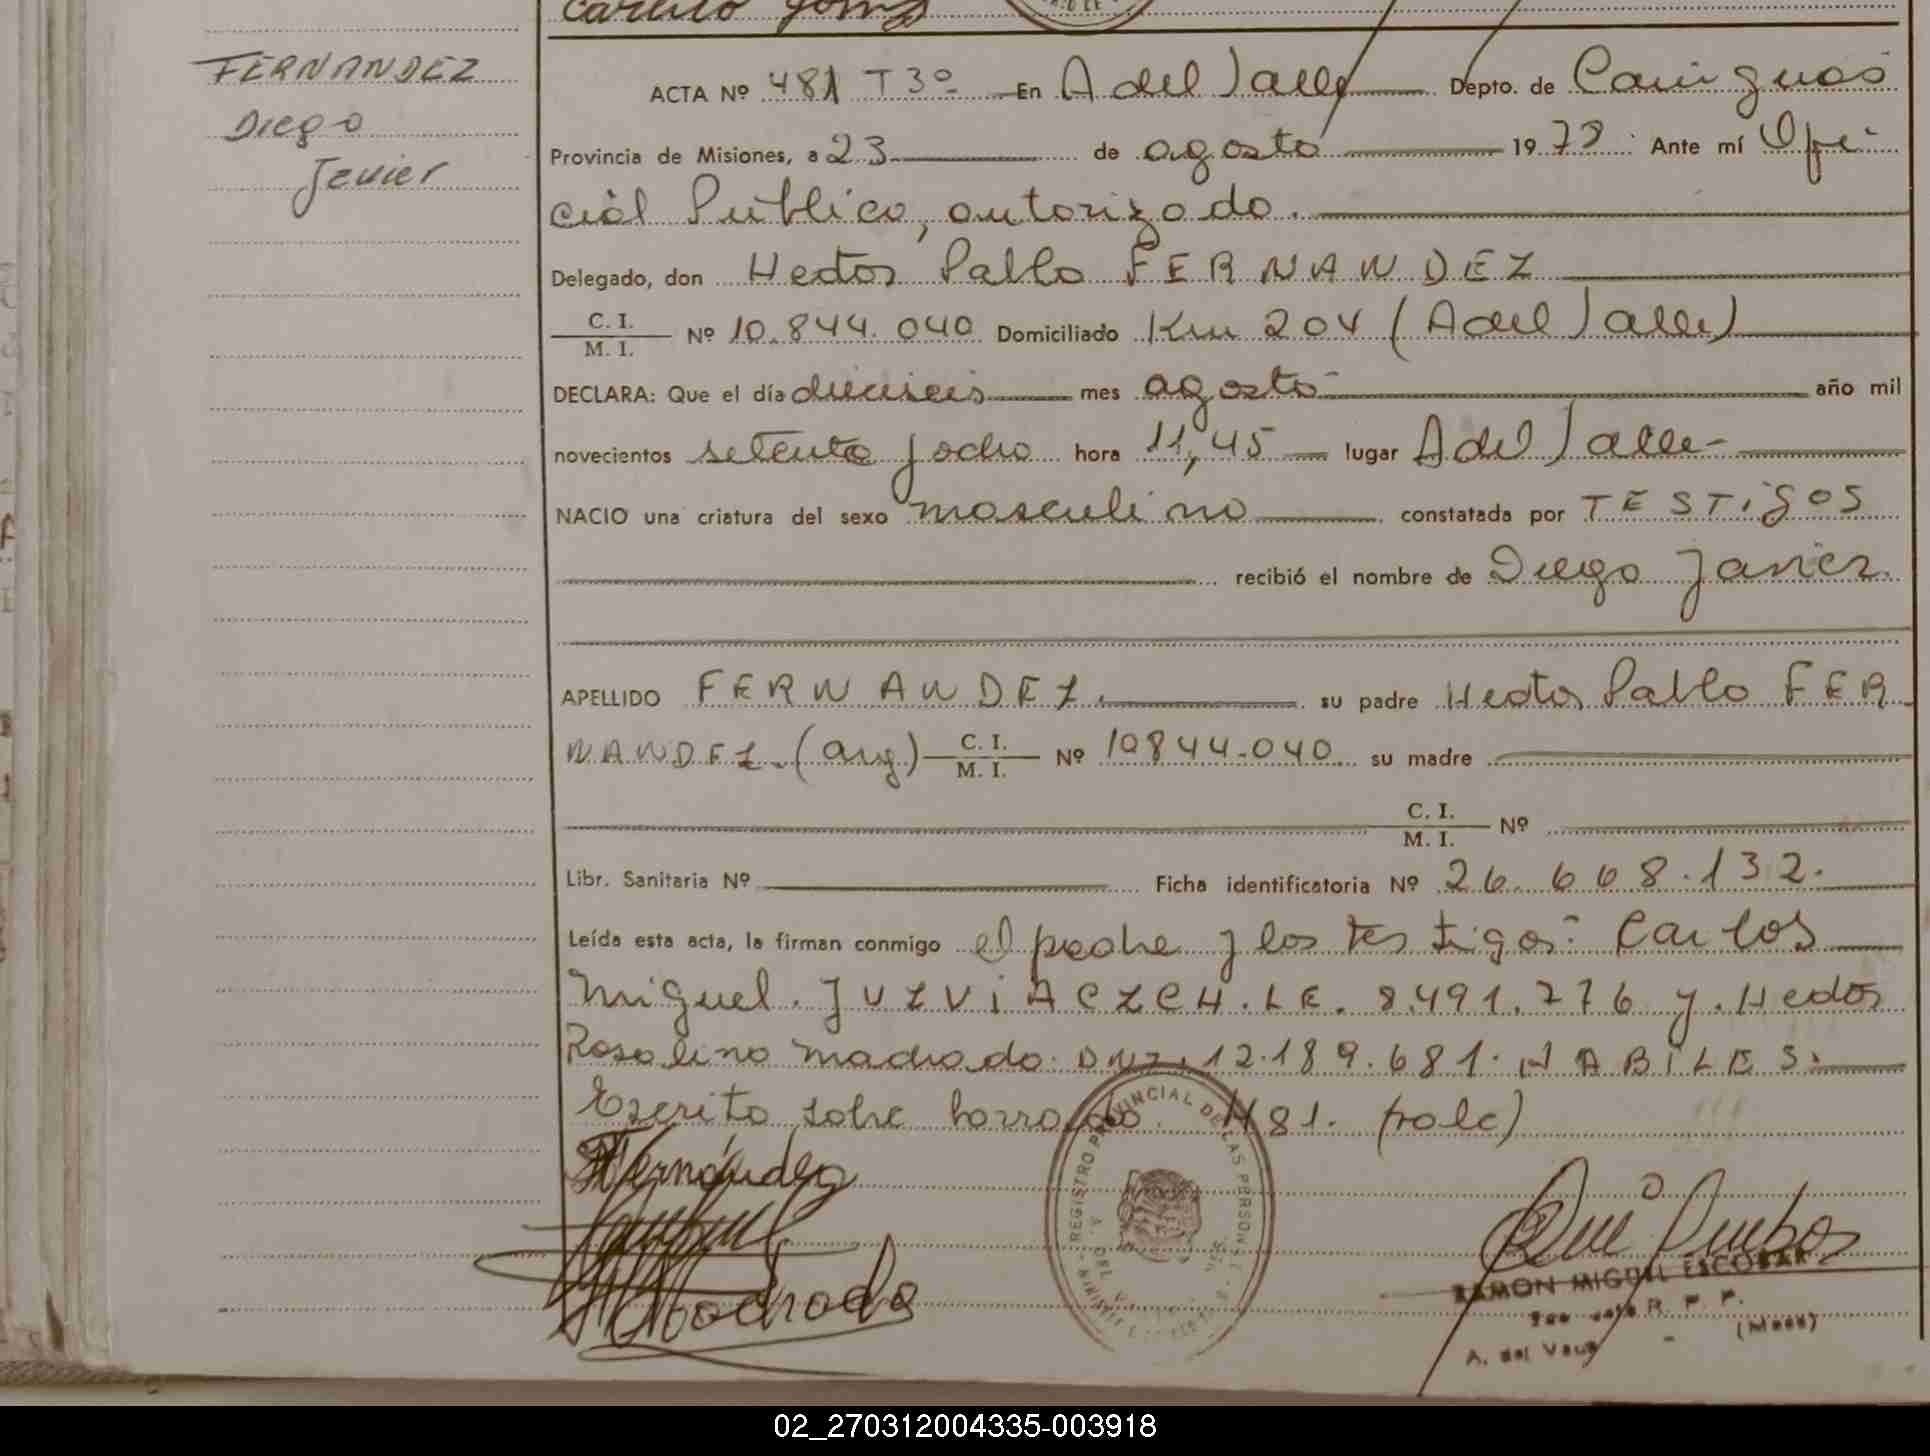 FERNANDEZ
Diego
Javier
ACTA Nº 481 T3º En A del Valle Depto. de Cainguas
Provincia de Misiones, a 23 de agosto 1978 Ante mí Ofi
cial Publico, autorizado.
Delegado, don Hector Pablo FERNANDEZ
C. I.
M. I. Nº 10.844.040 Domiciliado Km 204 (A del Valle)
DECLARA: Que el día dieciseis mes agosto año mil
novecientos setenta y ocho hora 11,45 lugar A del Valle
NACIO una criatura del sexo masculino constatada por TESTIGOS
recibió el nombre de Diego Javier
APELLIDO FERNANDEZ. su padre Hector Pablo FER
NANDEZ. (arg) C. I.
M. I. Nº 10844.040 su madre
C. I.
M. I. Nº
Libr. Sanitaria Nº Ficha identificatoria Nº 26.608.132.
Leída esta acta, la firman conmigo el padre y los testigos: Carlos
Miguel. JULVIACZCH. LE. 8.491.776 y. Hector
Rosalino Machado. DNI. 12.189.681. HABILES.
Escrito sobre borrado. 481. (vale)
Fernández
Machado
REGISTRO PROVINCIAL DE LAS PERSONAS
RAMON MIGUEL ESCOBAR
R. P. P.
A. del Valle
02_270312004335-003918